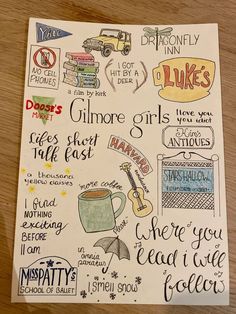 Yale
DRAGONFLY
INN
NO CELL
PHONES
( I GOT
HIT BY A
DEER )
LUKE'S
a film by kirk
DOOSE'S
MARKET
Gilmore girls
I love you
you idiot
Kim's
ANTIQUES
Lifes short
Talk fast
HARVARD
STARS HOLLOW
a thousand
yellow daisies
more coffee
I find
NOTHING
exciting
BEFORE
11 am
in
omnia
paratus
Where you
lead i will
follow
MISS PATTY'S
SCHOOL OF BALLET
I smell snow